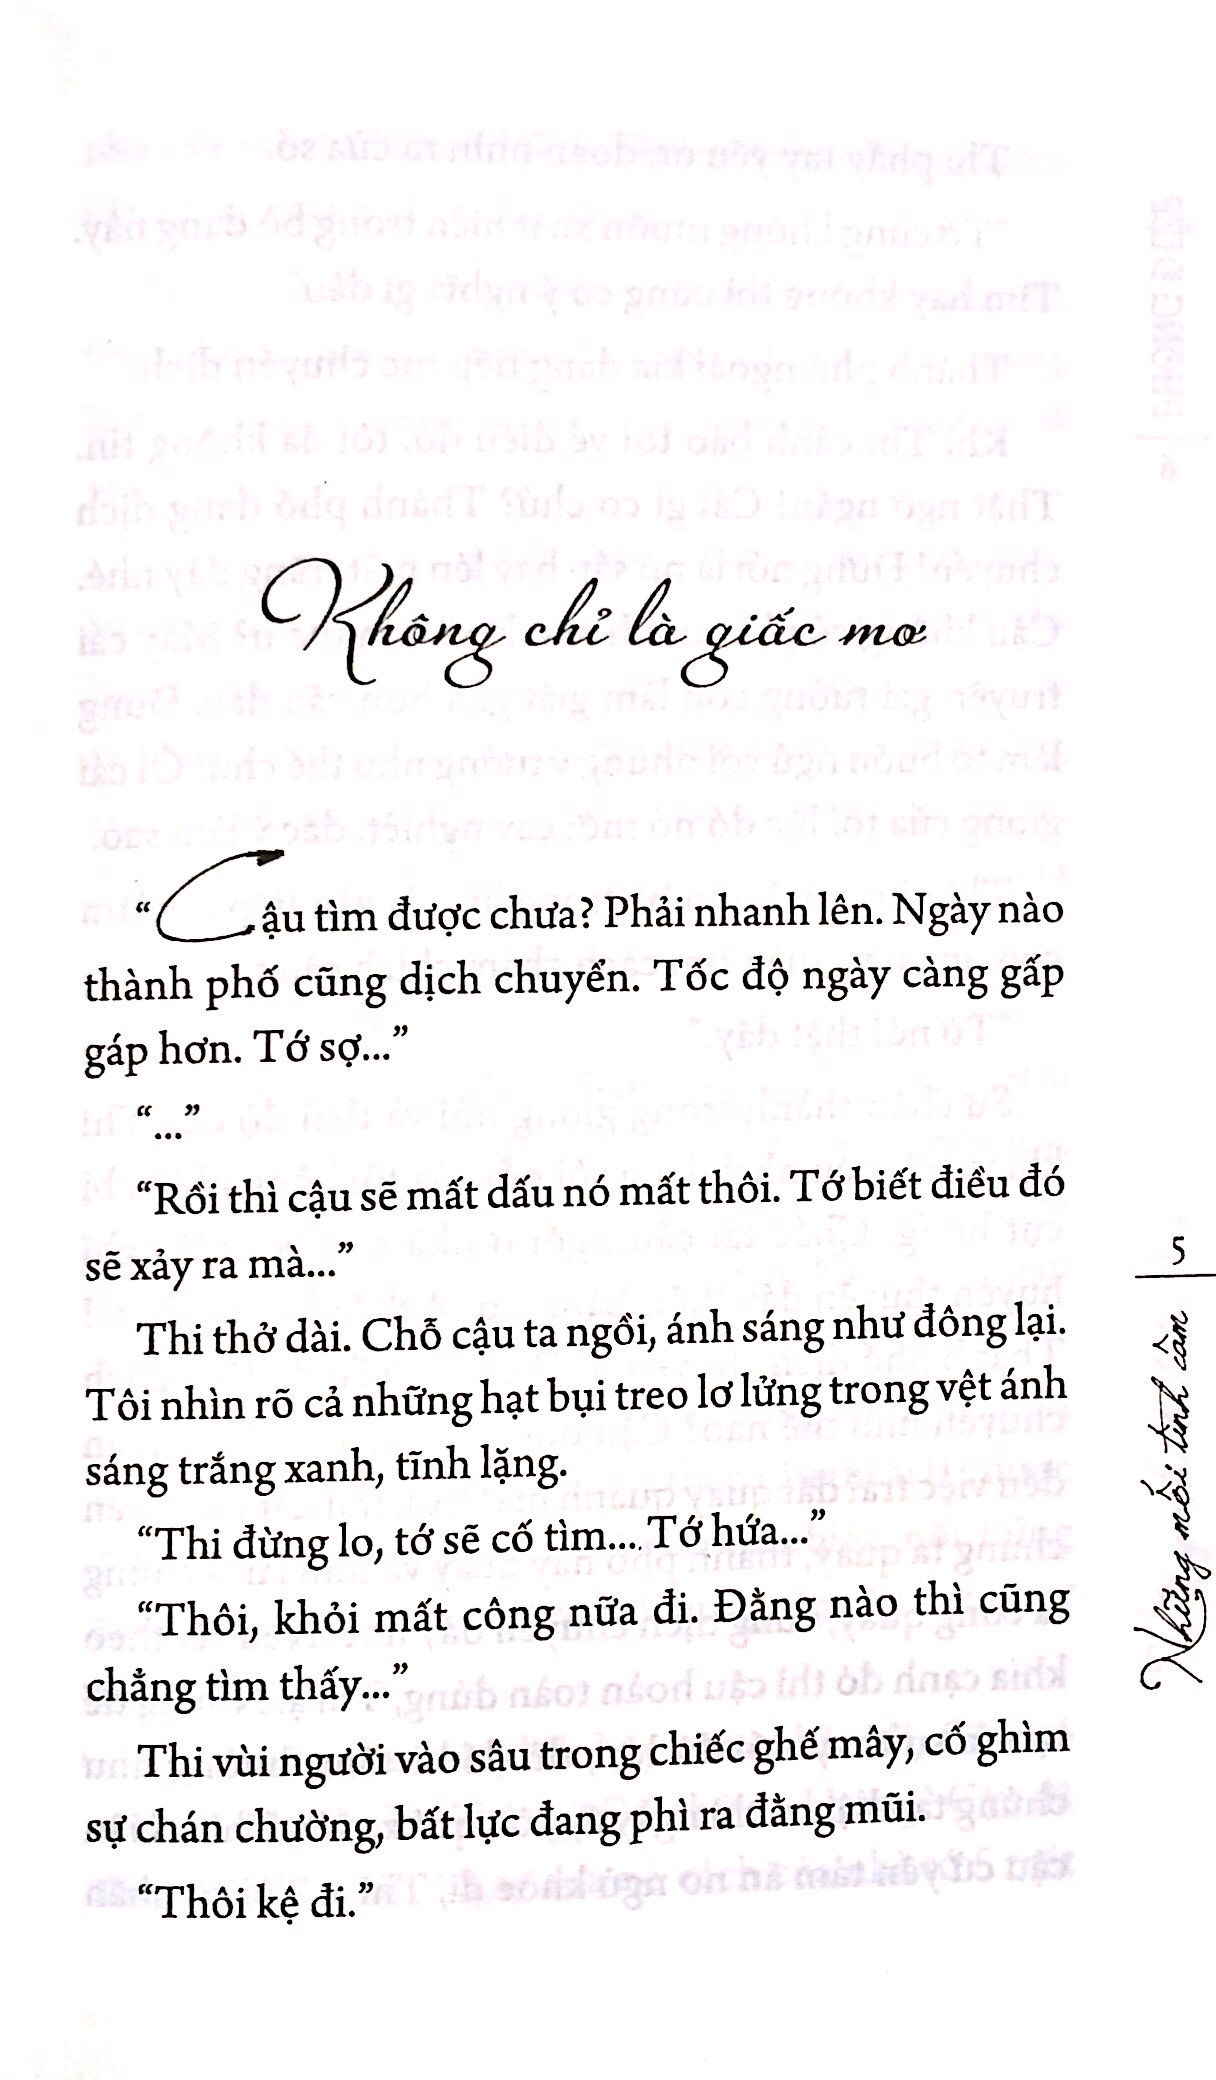 Không chỉ là giấc mơ
“Cậu tìm được chưa? Phải nhanh lên. Ngày nào
thành phố cũng dịch chuyển. Tốc độ ngày càng gấp
gáp hơn. Tớ sợ...”
“...”
“Rồi thì cậu sẽ mất dấu nó mất thôi. Tớ biết điều đó
sẽ xảy ra mà...”
Thi thở dài. Chỗ cậu ta ngồi, ánh sáng như đông lại.
Tôi nhìn rõ cả những hạt bụi treo lơ lửng trong vệt ánh
sáng trắng xanh, tĩnh lặng.
“Thi đừng lo, tớ sẽ cố tìm... Tớ hứa...”
“Thôi, khỏi mất công nữa đi. Đằng nào thì cũng
chẳng tìm thấy...”
Thi vùi người vào sâu trong chiếc ghế mây, cố ghìm
sự chán chường, bất lực đang phì ra đằng mũi.
“Thôi kệ đi.”
5
Những mối tình câm